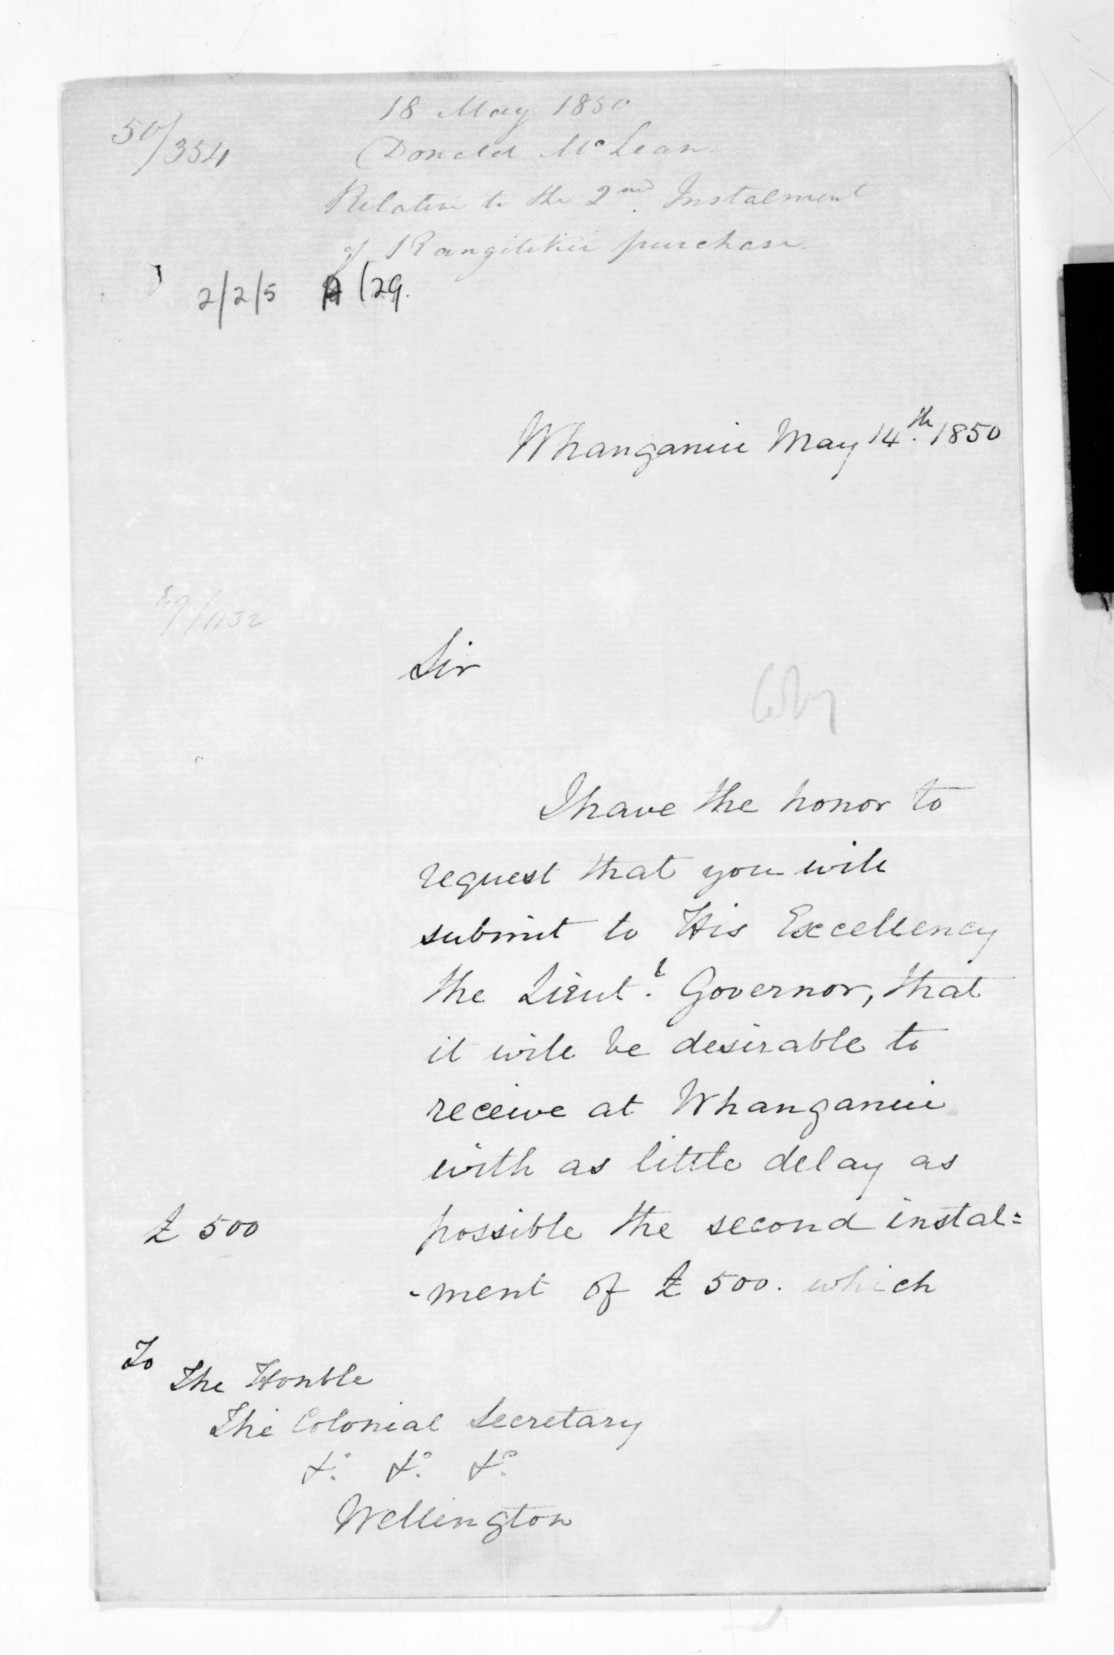 50/354
18 May 1850
Donald McLean
Relative to the 2nd. Instalment
of Rangitikei purchase.
2/2/5 A/29.
Whanganui May 14th. 1850
Sir
Copy
I have the honor to
request that you will
submit to His Excellency
the Lieut.t Governor, that
it will be desirable to
receive at Whanganui
with as little delay as
£500
possible the second instal=
-ment of £500. which
To
The Honble
The Colonial Secretary
&c. &c. &c.
Wellington